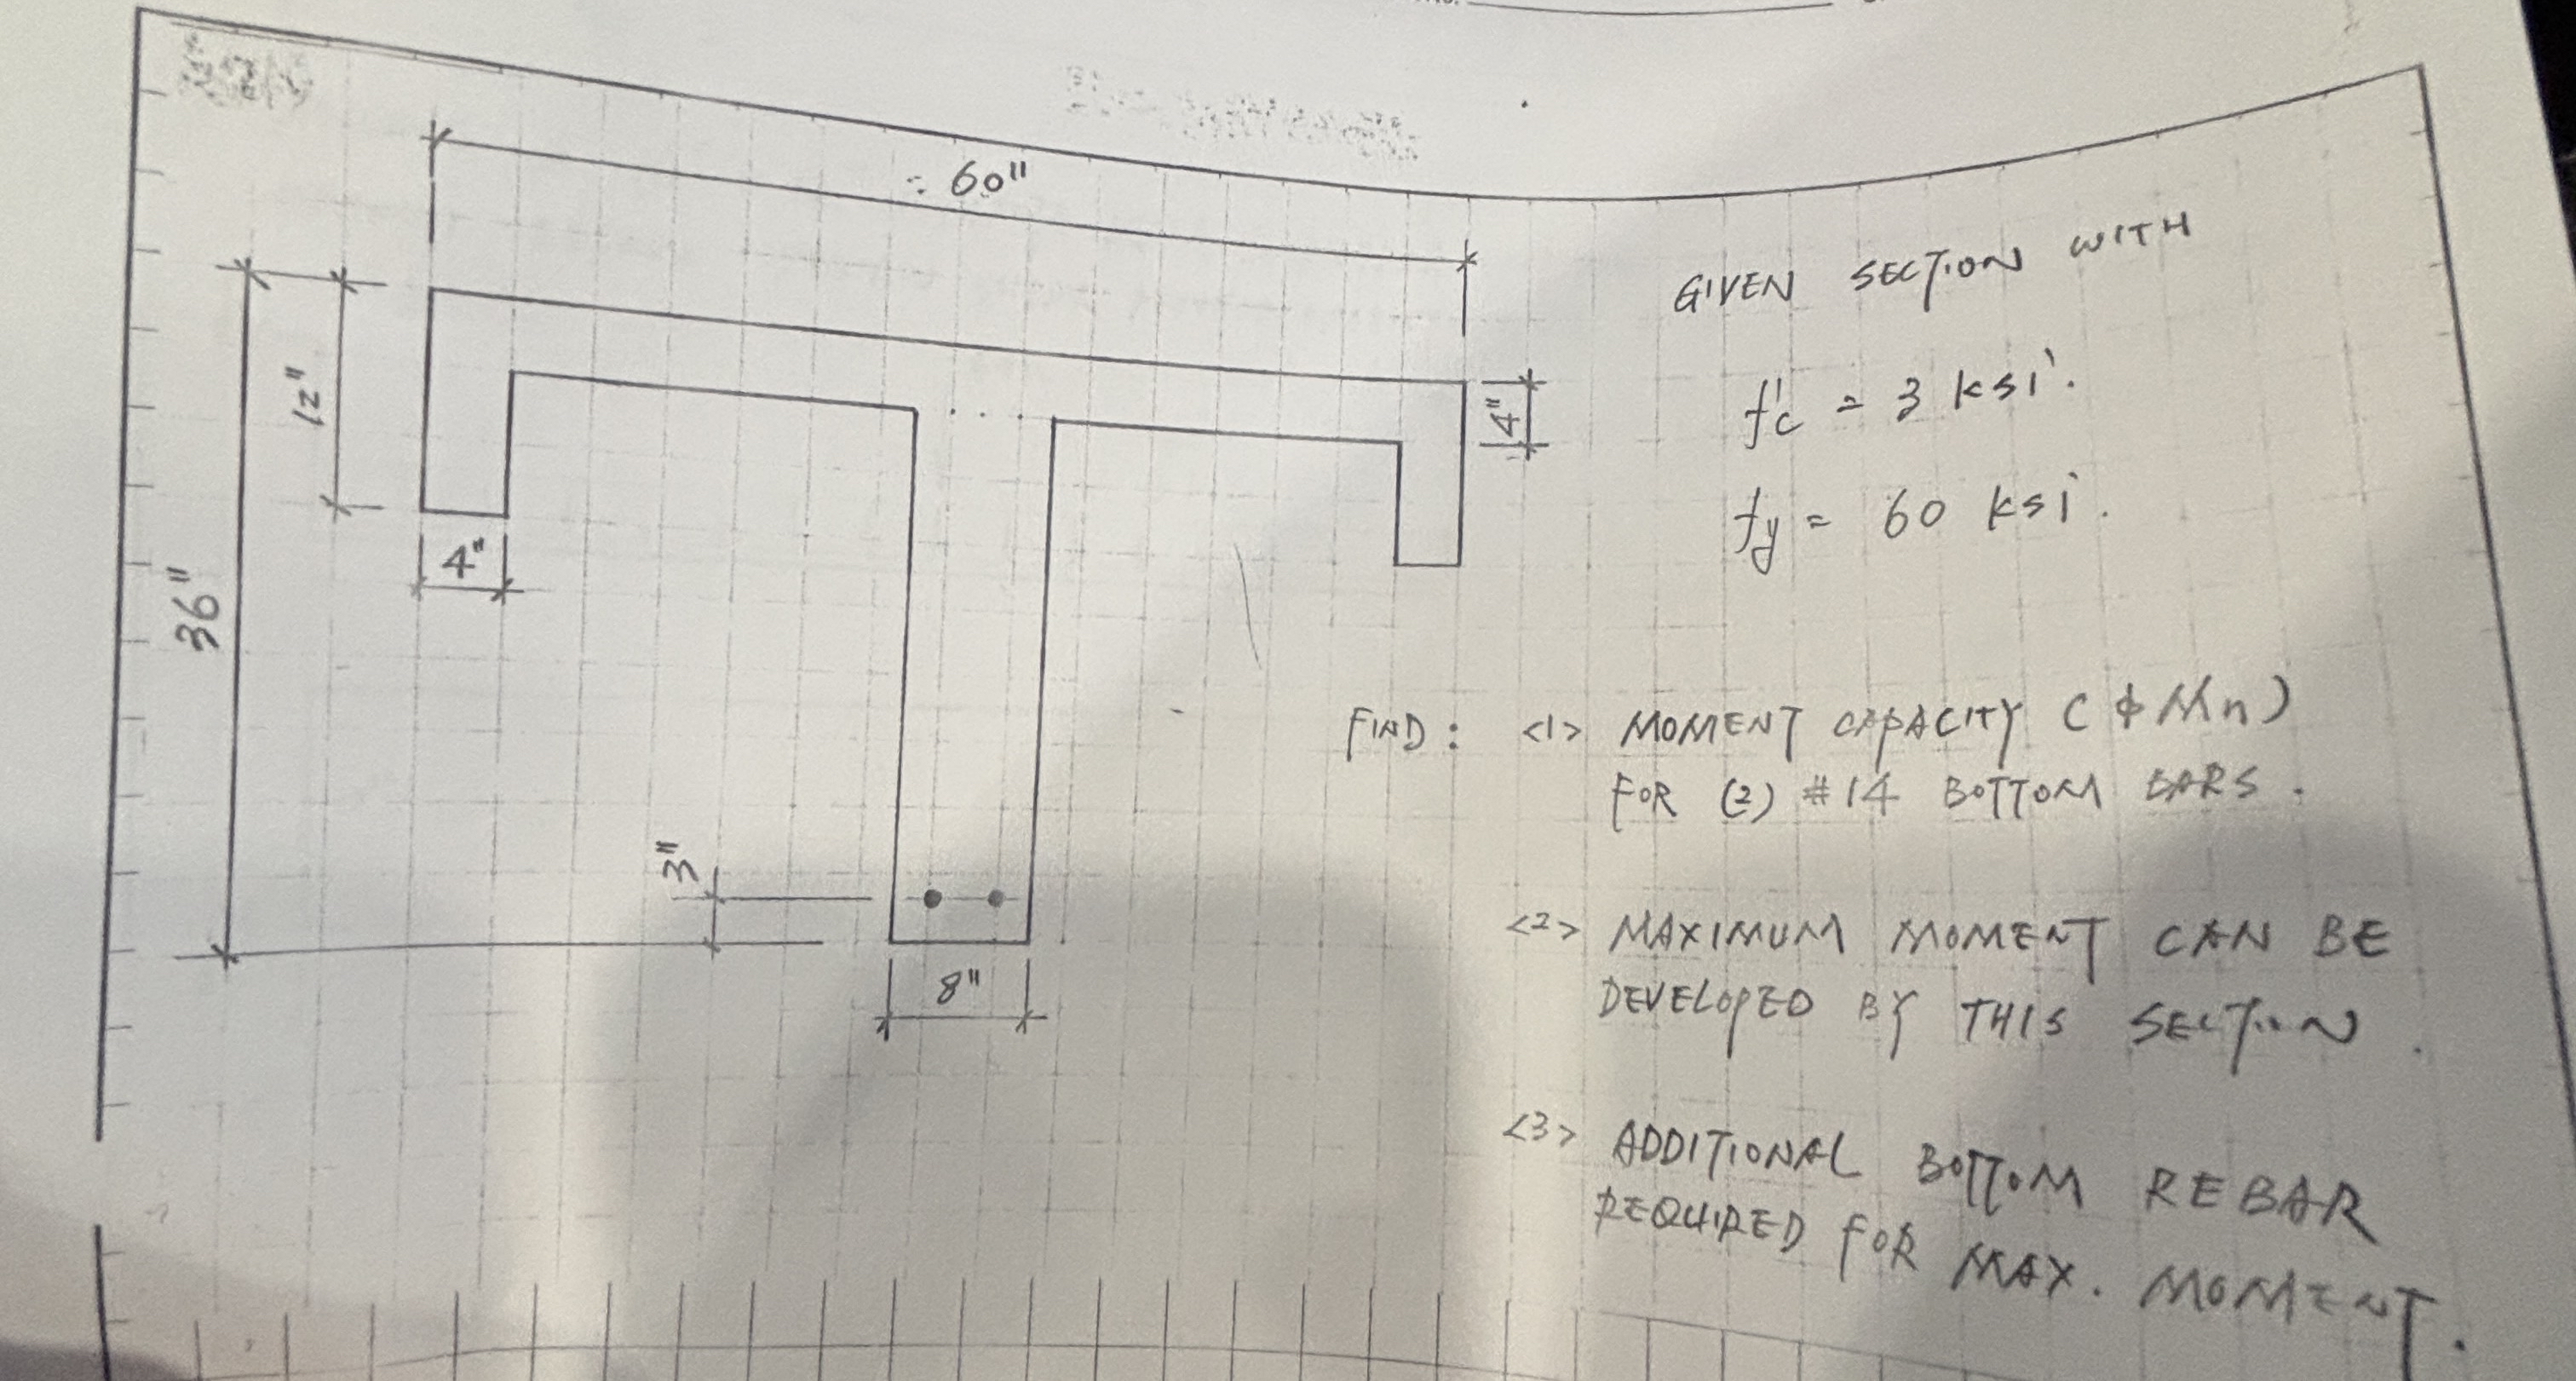 60"
12"
4"
4"
36"
3"
8"
GIVEN SECTION WITH
f'c = 3 ksi.
fy = 60 ksi.
FIND: <1> MOMENT CAPACITY (ϕMn)
FOR (2) #14 BOTTOM BARS.
<2> MAXIMUM MOMENT CAN BE
DEVELOPED BY THIS SECTION.
<3> ADDITIONAL BOTTOM REBAR
REQUIRED FOR MAX. MOMENT.